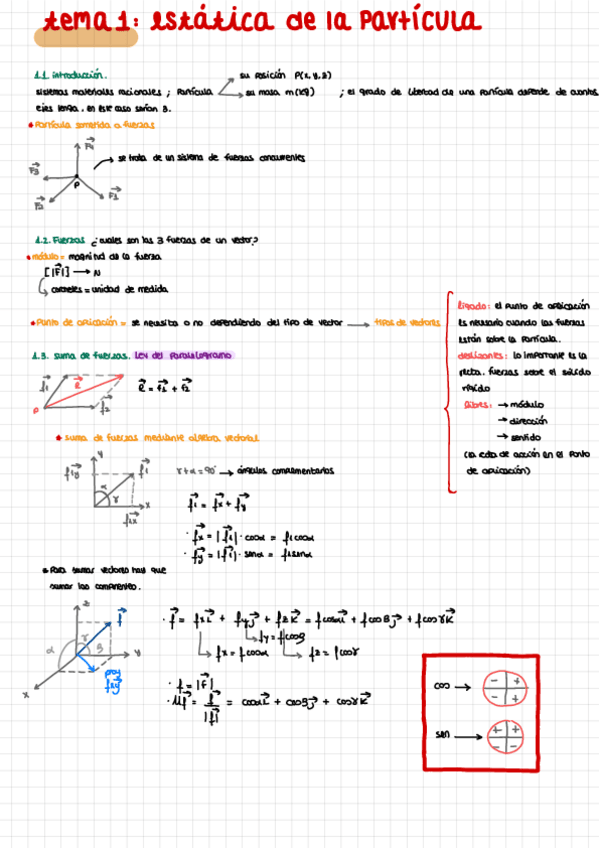 tema 1: estática de la partícula
1.1. introducción.
sistemas materiales racionales ; Partícula
su posición P(x, y, z)
su masa m(kg)
; el grado de libertad de una partícula depende de cuantos
ejes tenga. en este caso serían 3.
Partícula sometida a fuerzas
F4
F3
P
F1
F2
se trata de un sistema de fuerzas concurrentes
1.2. Fuerzas ¿cuales son las 3 fuerzas de un vector?
módulo = magnitud de la fuerza
[|F|] → N
corchetes = unidad de medida
Punto de aplicación = se necesita o no dependiendo del tipo de vector → tipos de vectores
ligado: el punto de aplicación
es necesario cuando las fuerzas
están sobre la partícula.
deslizantes: lo importante es la
recta. fuerzas sobre el sólido
rígido
libres: → módulo
→ dirección
→ sentido
de acción en el punto
de aplicación)
1.3. suma de fuerzas. Ley del paralelogramo
f1
R
P
f2
R = f1 + f2
suma de fuerzas mediante álgebra vectorial
y
f1y
f1
α
γ
x
f1x
γ+α = 90° → ángulos complementarios
f1 = fx + fy
· fx = |f1| · cosα = f1cosα
· fy = |f1| · senα = f1senα
Para sumar vectores hay que
sumar las componentes.
z
f
α
γ
β
y
x
proy
fxy
· f = fxi + fyj + fzk = fcosαi + fcosβj + fcosγk
fy = fcosβ
fx = fcosα
fz = fcosγ
· f = |f|
· uf = f / |f| = cosαi + cosβj + cosγk
cos →
- +
- +
sen →
+ +
- -